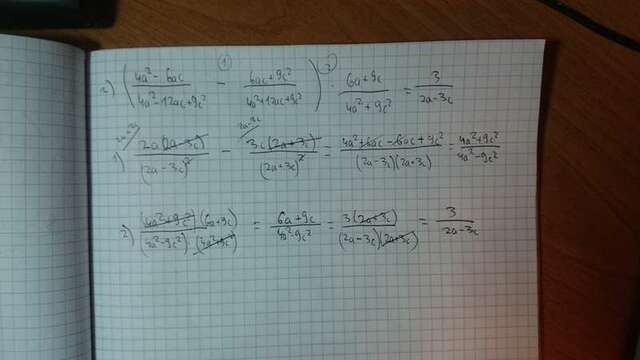 2) ( (4a² - 6ac)/(4a² - 12ac + 9c²) - (6ac + 9c²)/(4a² + 12ac + 9c²) ) · (6a + 9c)/(4a² + 9c²) = 3/(2a - 3c)
1) 2a(2a - 3c)/(2a - 3c)² - 3c(2a + 3c)/(2a + 3c)² = (4a² + 6ac - 6ac + 9c²)/((2a - 3c)(2a + 3c)) = (4a² + 9c²)/(4a² - 9c²)
2) (4a² + 9c²)(6a + 9c)/((4a² - 9c²)(4a² + 9c²)) = (6a + 9c)/(4a² - 9c²) = 3(2a + 3c)/((2a - 3c)(2a + 3c)) = 3/(2a - 3c)